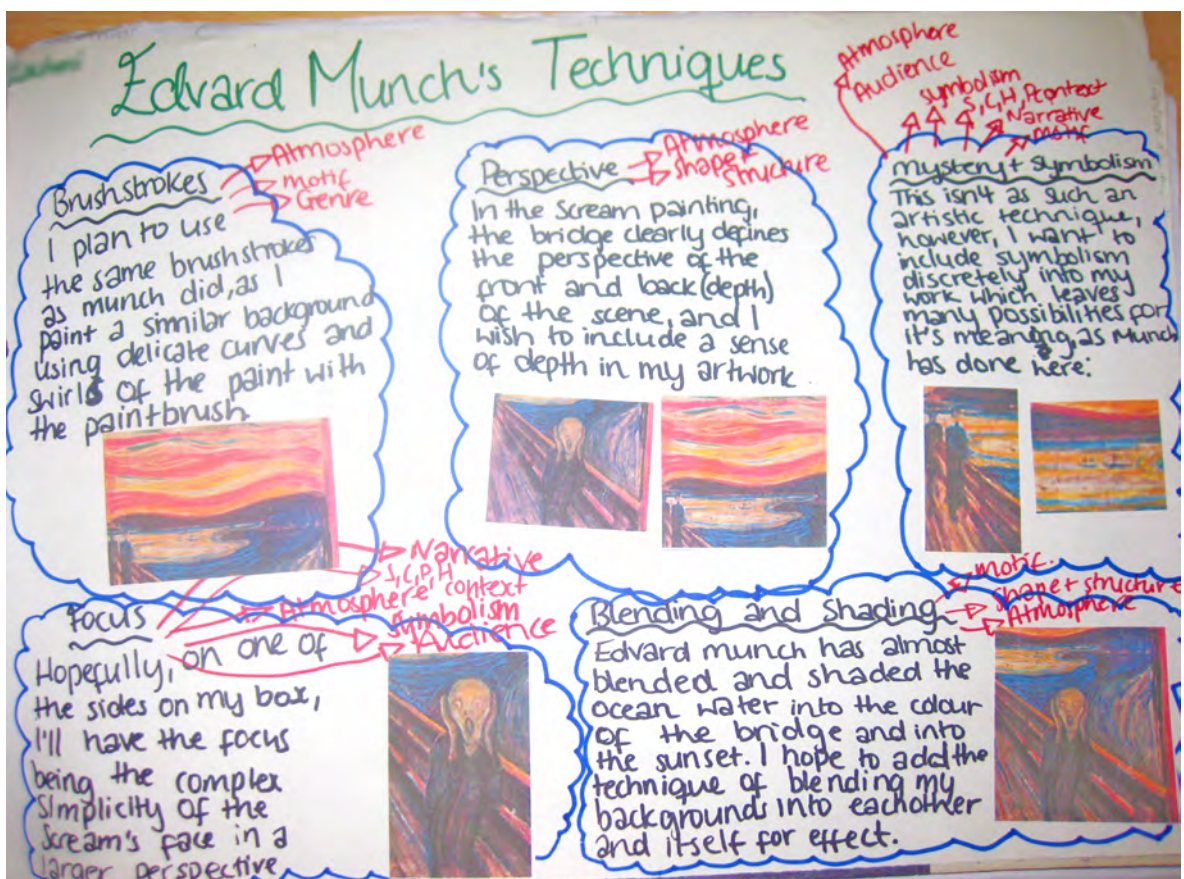 Edvard Munch's Techniques
Brushstrokes
Atmosphere
motif
Genre
I plan to use
the same brushstrokes
as munch did, as I
paint a similar background
using delicate curves and
swirls of the paint with
the paintbrush.
Perspective
Atmosphere
shape+
structure
In the scream painting,
the bridge clearly defines
the perspective of the
front and back (depth)
of the scene, and I
wish to include a sense
of depth in my artwork
Atmosphere
Audience
symbolism
S, C, H, P context
Narrative
motif
mystery + symbolism
This isn't as such an
artistic technique,
however, I want to
include symbolism
discretely into my
work which leaves
many possibilities for
it's meaning, as Munch
has done here:
Focus
Narrative
S, C, P, H
Atmosphere context
symbolism
Audience
Hopefully, on one of
the sides on my box,
I'll have the focus
being the complex
simplicity of the
scream's face in a
larger perspective
Blending and Shading
motif.
shape + structure
Atmosphere
Edvard munch has almost
blended and shaded the
ocean water into the colour
of the bridge and into
the sunset. I hope to add the
technique of blending my
backgrounds into eachother
and itself for effect.